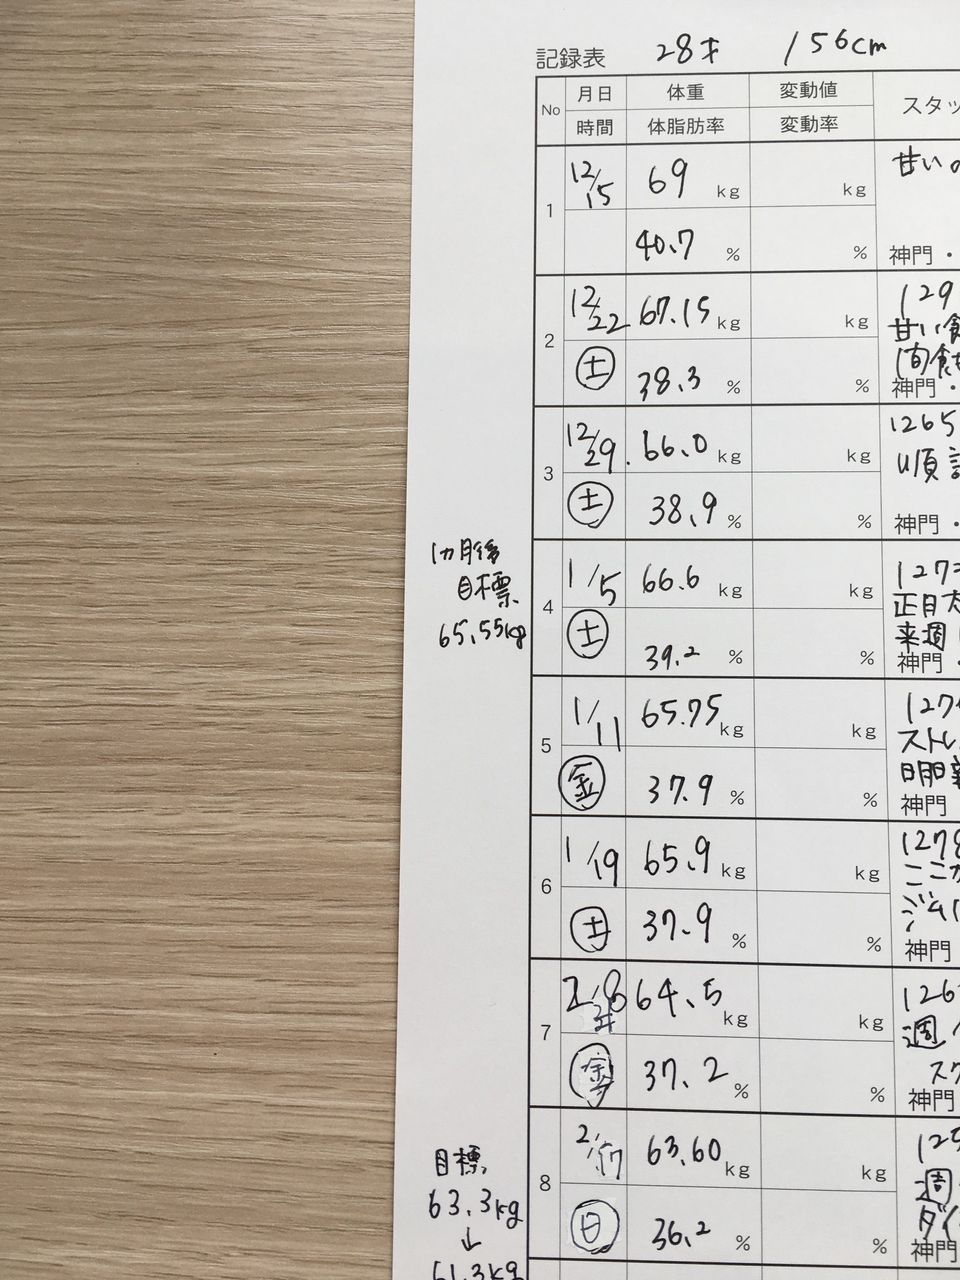 記録表 28才 156cm
No 月日 体重 変動値 スタッ
時間 体脂肪率 変動率
1 12/15 69 kg kg 甘いの
40.7 % % 神門・
2 12/22 67.15 kg kg 129
甘い食
間食
土 38.3 % % 神門・
3 12/29. 66.0 kg kg 1265
順
土 38.9 % % 神門・
1カ月後
目標
65.55kg
4 1/5 66.6 kg kg 127
正月
来週
土 39.2 % % 神門・
5 1/11 65.75 kg kg 127
ストレ
金 37.9 % % 神門
6 1/19 65.9 kg kg 1278
ここ
ジム
土 37.9 % % 神門
7 2/8 64.5 kg kg 126
週
スク
金 37.2 % % 神門
8 2/17 63.60 kg kg 125
週
ダイ
日 36.2 % % 神門
目標
63.3kg
↓
61.3kg